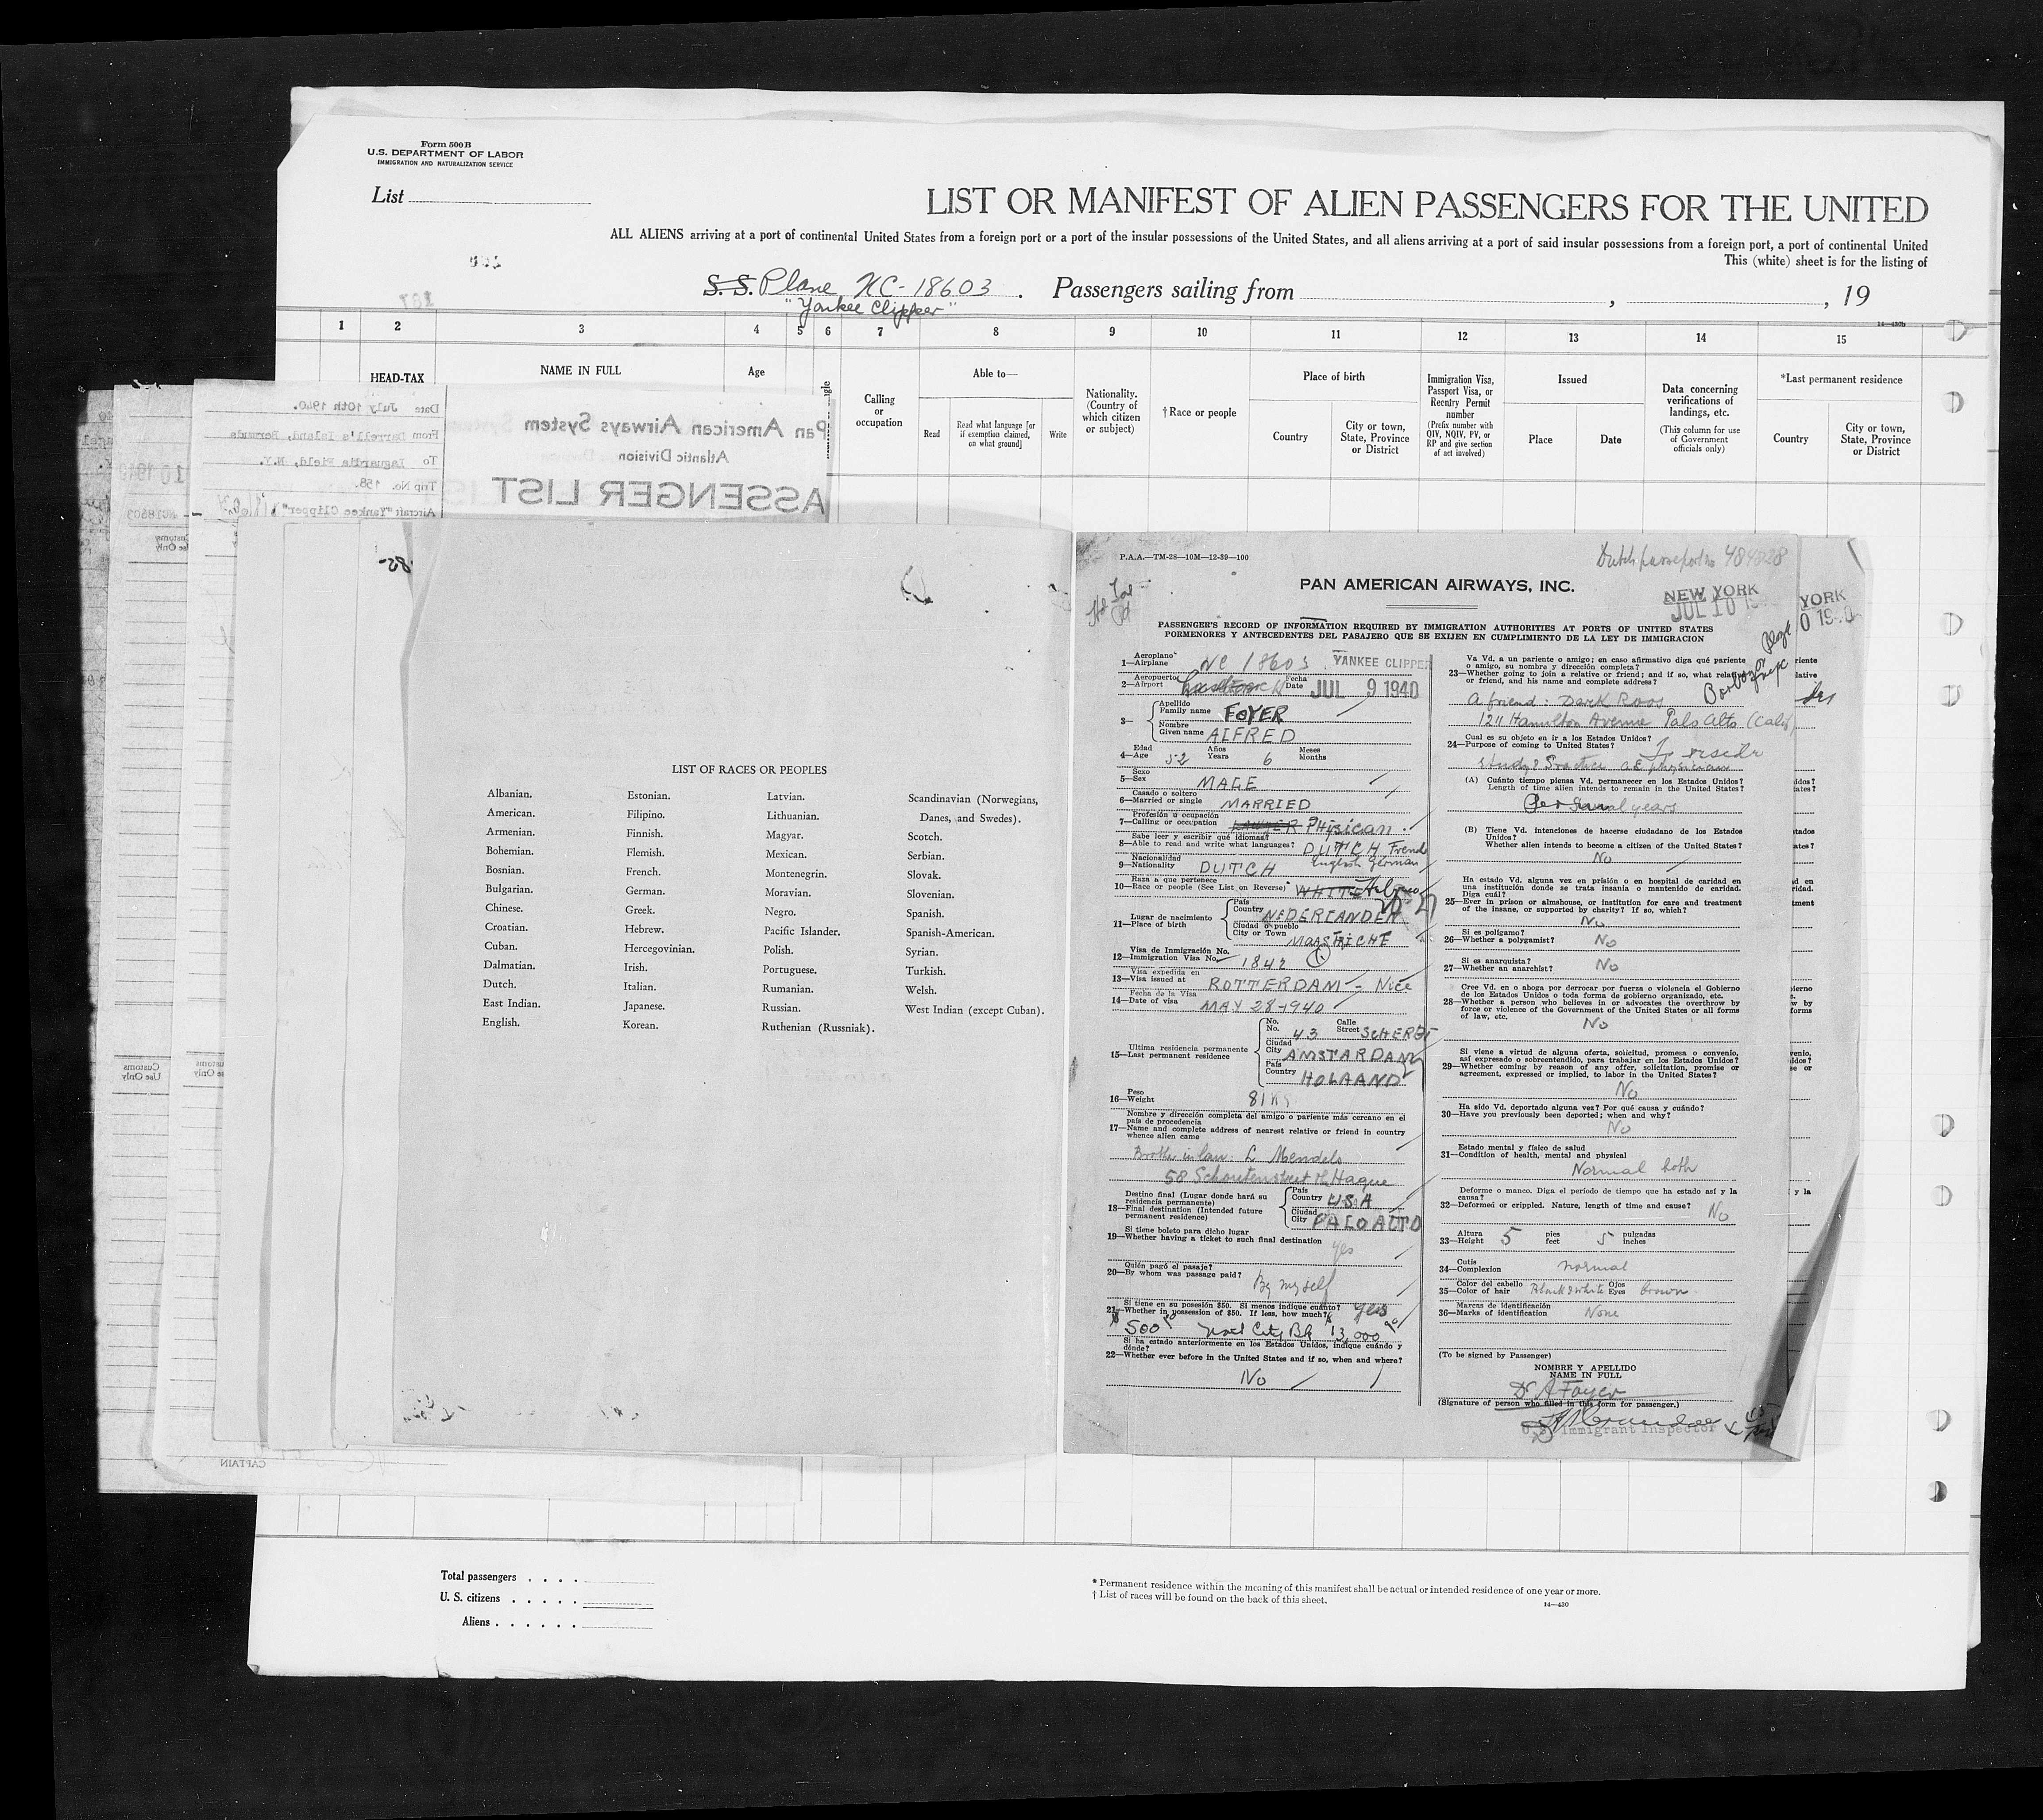 Form 500 B
U.S. DEPARTMENT OF LABOR
IMMIGRATION AND NATURALIZATION SERVICE
List
LIST OR MANIFEST OF ALIEN PASSENGERS FOR THE UNITED
ALL ALIENS arriving at a port of continental United States from a foreign port or a port of the insular possessions of the United States, and all aliens arriving at a port of said insular possessions from a foreign port, a port of continental United
This (white) sheet is for the listing of
S. S. Plane NC-18603. Passengers sailing from , , 19
"Yankee Clipper"
14—430b
1 2 3 4 5 6 7 8 9 10 11 12 13 14 15
HEAD-TAX
NAME IN FULL
Age
Calling
or
occupation
Able to—
Read
Read what language [or
if exemption claimed,
on what ground]
Write
Nationality.
(Country of
which citizen
or subject)
†Race or people
Place of birth
Country
City or town,
State, Province
or District
Immigration Visa,
Passport Visa, or
Reentry Permit
number
(Prefix number with
QIV, NQIV, PV, or
RP and give section
of act involved)
Issued
Place
Date
Data concerning
verifications of
landings, etc.
(This column for use
of Government
officials only)
*Last permanent residence
Country
City or town,
State, Province
or District
Pan American Airways System
Atlantic Division
PASSENGER LIST
Date July 10th 1940.
From Darrell's Island, Bermuda
To Laguardia Field, N.Y.
Trip No. 158.
Aircraft "Yankee Clipper"
Customs
Use Only
CAPTAIN
LIST OF RACES OR PEOPLES
Albanian.
American.
Armenian.
Bohemian.
Bosnian.
Bulgarian.
Chinese.
Croatian.
Cuban.
Dalmatian.
Dutch.
East Indian.
English.
Estonian.
Filipino.
Finnish.
Flemish.
French.
German.
Greek.
Hebrew.
Hercegovinian.
Irish.
Italian.
Japanese.
Korean.
Latvian.
Lithuanian.
Magyar.
Mexican.
Montenegrin.
Moravian.
Negro.
Pacific Islander.
Polish.
Portuguese.
Rumanian.
Russian.
Ruthenian (Russniak).
Scandinavian (Norwegians,
Danes, and Swedes).
Scotch.
Serbian.
Slovak.
Slovenian.
Spanish.
Spanish-American.
Syrian.
Turkish.
Welsh.
West Indian (except Cuban).
P.A.A.—TM-28—10M—12-39—100
Dutch passport no 484828
PAN AMERICAN AIRWAYS, INC.
NEW YORK
JUL 10
PASSENGER'S RECORD OF INFORMATION REQUIRED BY IMMIGRATION AUTHORITIES AT PORTS OF UNITED STATES
PORMENORES Y ANTECEDENTES DEL PASAJERO QUE SE EXIJEN EN CUMPLIMIENTO DE LA LEY DE IMMIGRACION
Aeroplano
1—Airplane NC 18603 YANKEE CLIPPER
Aeropuerto
2—Airport
Fecha
Date JUL 9 1940
3—
Apellido
Family name FOYER
Nombre
Given name ALFRED
Edad Años Meses
4—Age 52 Years 6 Months
Sexo
5—Sex MALE
Casado o soltero
6—Married or single MARRIED
Profesión u ocupación
7—Calling or occupation LAWYER PHysican
Sabe leer y escribir qué idiomas?
8—Able to read and write what languages? DUTCH French
English German
Nacionalidad
9—Nationality DUTCH
Raza a que pertenece
10—Race or people (See List on Reverse) WHITE Hebrew
11—Lugar de nacimiento
Place of birth
País
Country NEDERLANDEN
Ciudad o pueblo
City or Town MAASTRICHT
Visa de Inmigración No.
12—Immigration Visa No. 1842
Visa expedida en
13—Visa issued at ROTTERDAM - Nice
Fecha de la Visa
14—Date of visa MAY 28-1940
Ultima residencia permanente
15—Last permanent residence
No. Calle
No. 43 Street
Ciudad
City AMSTARDAM
País
Country HOLAAND
Peso
16—Weight 81
Nombre y dirección completa del amigo o pariente más cercano en el
país de procedencia
17—Name and complete address of nearest relative or friend in country
whence alien came
Brother in law: L Mendels
58 Schoutenstreet H Hague
Destino final (Lugar donde hará su
residencia permanente)
18—Final destination (Intended future
permanent residence)
País
Country USA
Ciudad
City PALO ALTO
Si tiene boleto para dicho lugar
19—Whether having a ticket to such final destination yes
Quién pagó el pasaje?
20—By whom was passage paid? By myself
Si tiene en su posesión $50. Si menos indique cuánto?
21—Whether in possession of $50. If less, how much? yes
$500 Natl City Bk 13,000
Si ha estado anteriormente en los Estados Unidos, indique cuándo y
dónde?
22—Whether ever before in the United States and if so, when and where?
No
Va Vd. a un pariente o amigo; en caso afirmativo diga qué pariente
o amigo, su nombre y dirección completa?
23—Whether going to join a relative or friend; and if so, what relative
or friend, and his name and complete address?
A friend: Derek Roos
1211 Hamilton Avenue Palo Alto (Calif)
Cual es su objeto en ir a los Estados Unidos?
24—Purpose of coming to United States? To reside
study & Practice as physician
(A) Cuánto tiempo piensa Vd. permanecer en los Estados Unidos?
Length of time alien intends to remain in the United States?
years
(B) Tiene Vd. intenciones de hacerse ciudadano de los Estados
Unidos?
Whether alien intends to become a citizen of the United States?
No
Ha estado Vd. alguna vez en prisión o en hospital de caridad en
una institución donde se trata insania o mantenido de caridad.
Diga cuál?
25—Ever in prison or almshouse, or institution for care and treatment
of the insane, or supported by charity? If so, which?
No
Si es polígamo?
26—Whether a polygamist? No
Si es anarquista?
27—Whether an anarchist? No
Cree Vd. en o aboga por derrocar por fuerza o violencia el Gobierno
de los Estados Unidos o toda forma de gobierno organizado, etc.
28—Whether a person who believes in or advocates the overthrow by
force or violence of the Government of the United States or all forms
of law, etc. No
Si viene a virtud de alguna oferta, solicitud, promesa o convenio,
así expresado o sobreentendido, para trabajar en los Estados Unidos?
29—Whether coming by reason of any offer, solicitation, promise or
agreement, expressed or implied, to labor in the United States?
No
Ha sido Vd. deportado alguna vez? Por qué causa y cuándo?
30—Have you previously been deported; when and why?
No
Estado mental y físico de salud
31—Condition of health, mental and physical
Normal both
Deforme o manco. Diga el período de tiempo que ha estado así y la
causa?
32—Deformed or crippled. Nature, length of time and cause? No
Altura pies pulgadas
33—Height 5 feet 5 inches
Cutis
34—Complexion normal
Color del cabello Ojos
35—Color of hair Black & white Eyes brown
Marcas de identificación
36—Marks of identification None
(To be signed by Passenger)
NOMBRE Y APELLIDO
NAME IN FULL
Dr A Foyer
(Signature of person who filled in this form for passenger.)
U.S. Immigrant Inspector
Total passengers . . . .
U. S. citizens . . . . .
Aliens . . . . . .
* Permanent residence within the meaning of this manifest shall be actual or intended residence of one year or more.
† List of races will be found on the back of this sheet.
14—430